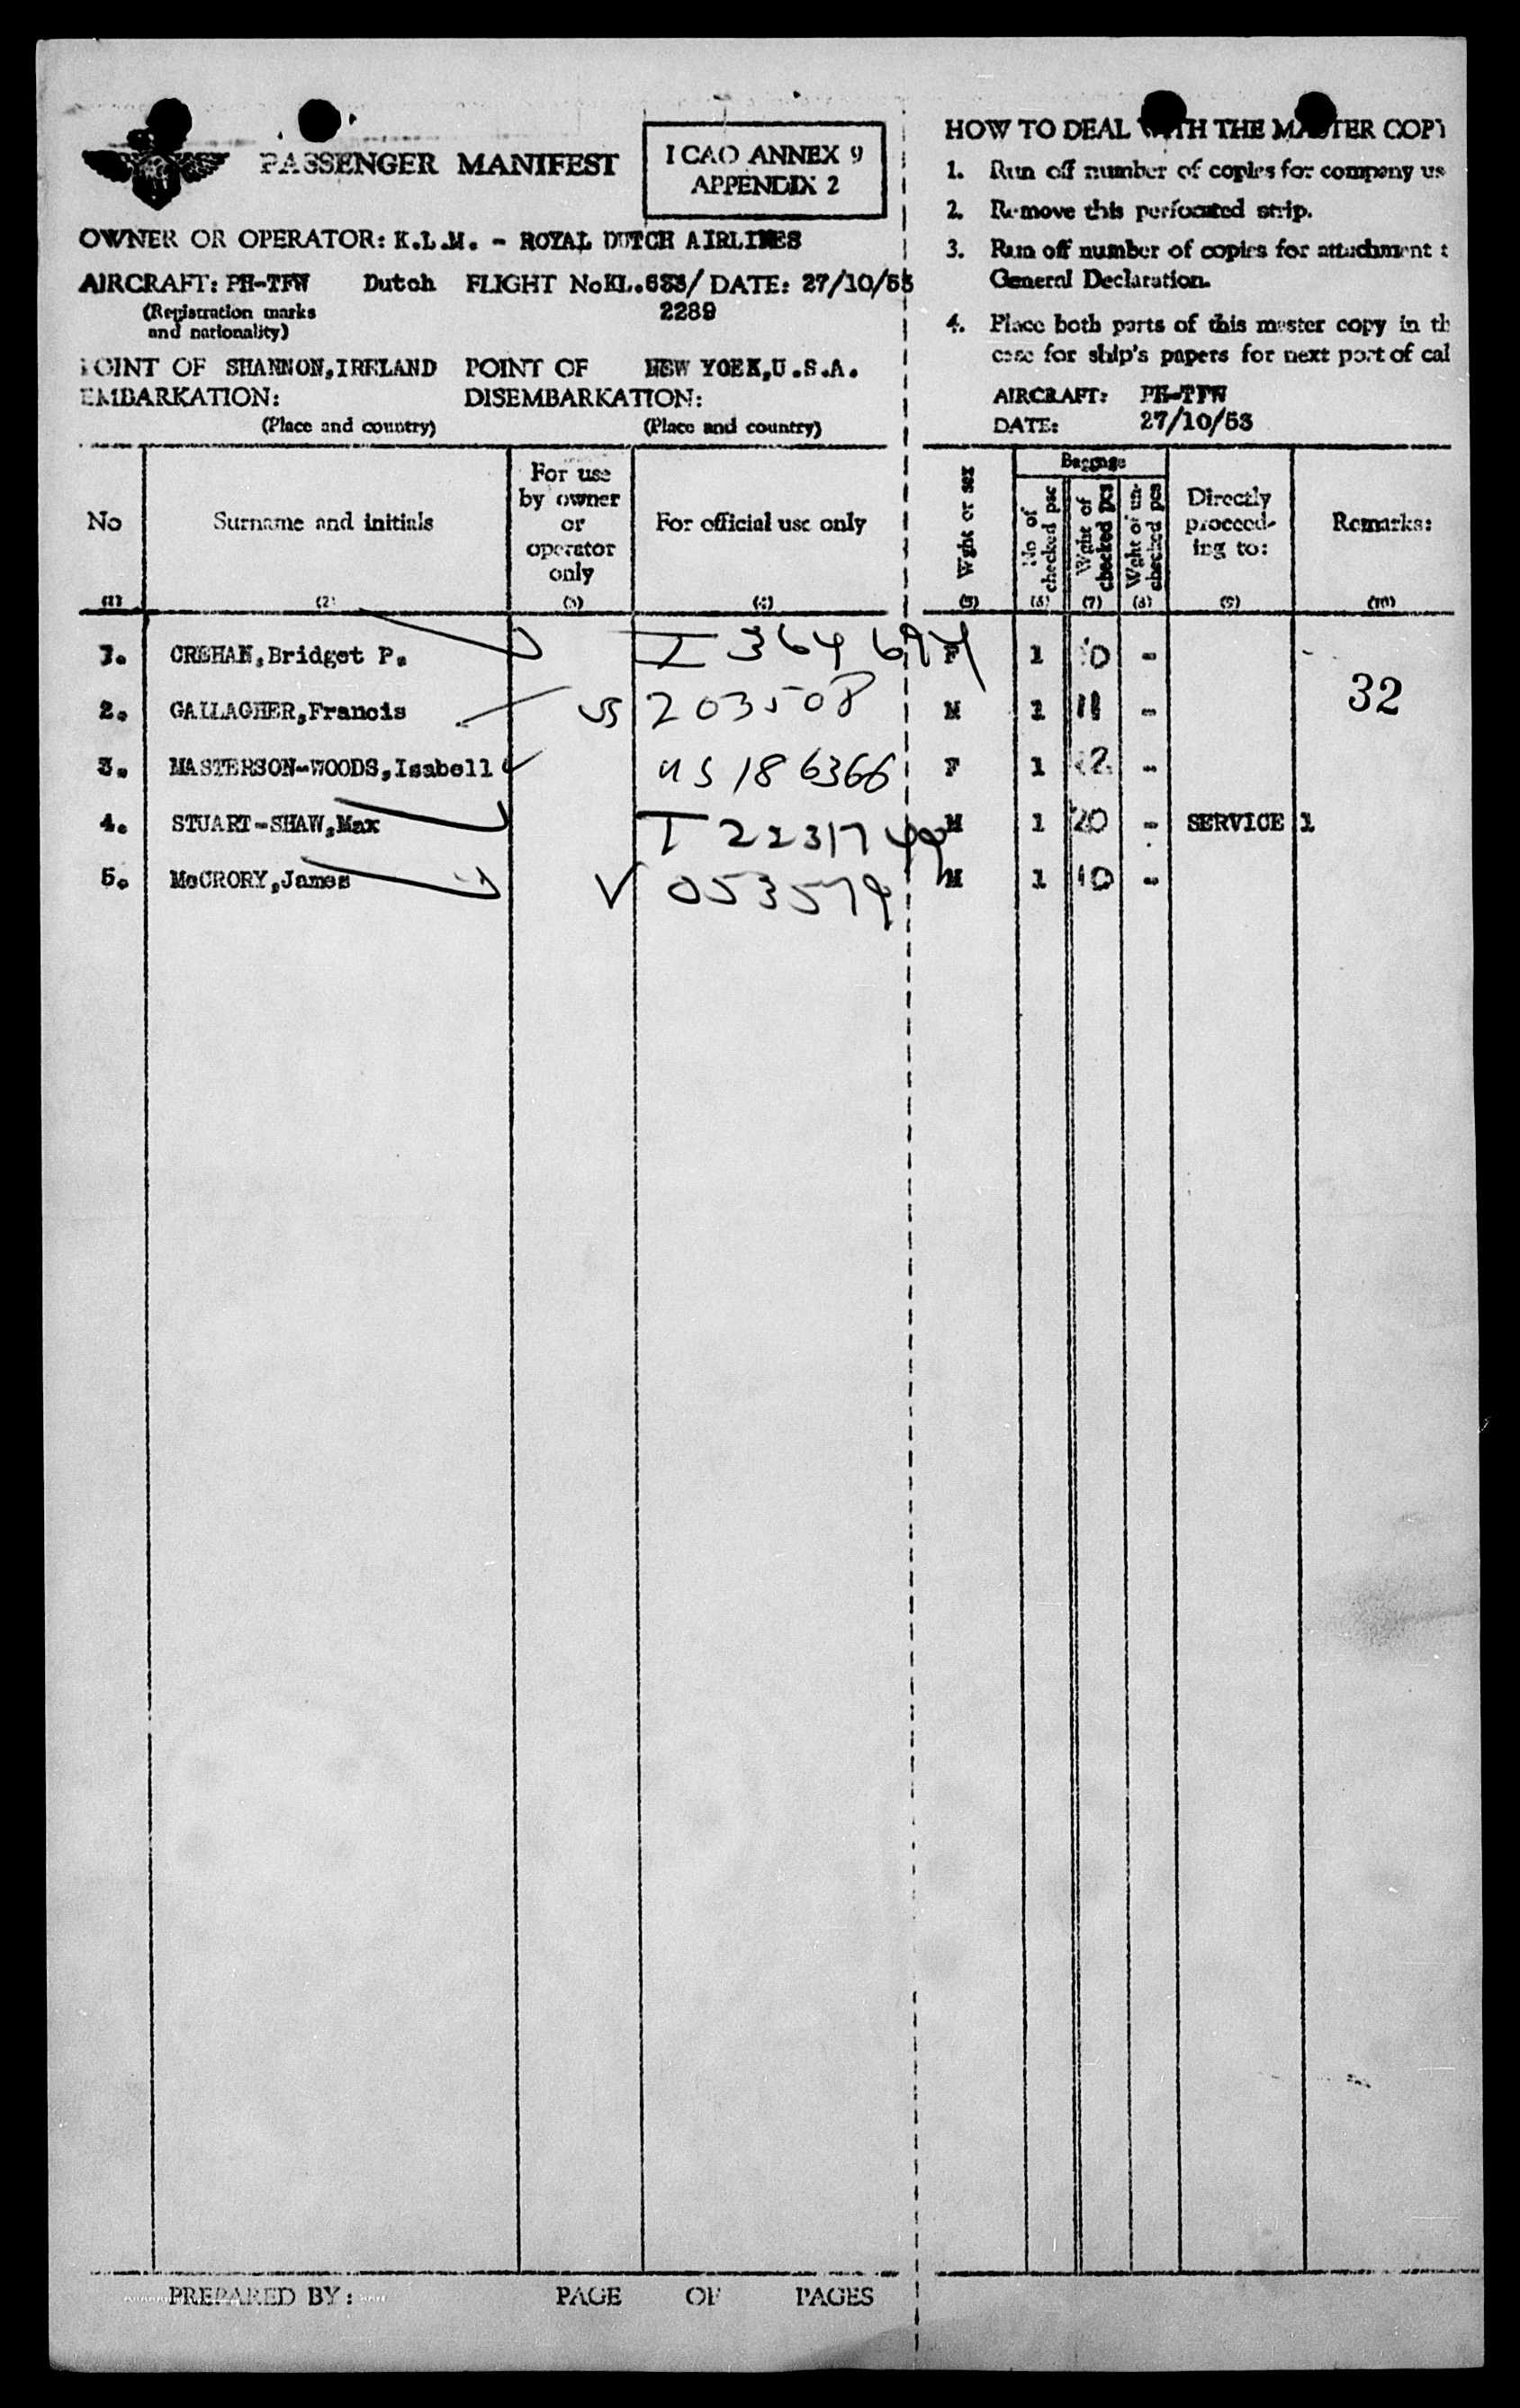 PASSENGER MANIFEST
I CAO ANNEX 9
APPENDIX 2
OWNER OR OPERATOR: K.L.M. - ROYAL DUTCH AIRLINES
AIRCRAFT: PH-TFW Dutch FLIGHT No KL.633/ DATE: 27/10/53
(Registration marks 2289
and nationality)
POINT OF SHANNON,IRELAND POINT OF NEW YORK,U.S.A.
EMBARKATION: DISEMBARKATION:
(Place and country) (Place and country)
HOW TO DEAL WITH THE MASTER COPY
1. Run off number of copies for company us
2. Remove this perforated strip.
3. Run off number of copies for attachment t
General Declaration.
4. Place both parts of this master copy in th
case for ship's papers for next port of cal
AIRCRAFT: PH-TFW
DATE: 27/10/53
No
Surname and initials
For use
by owner
or
operator
only
For official use only
Wght or sex
Baggage
No of
checked psc
Wght of
checked pcs
Wght of un-
checked pcs
Directly
proceed-
ing to:
Remarks:
(1) (2) (3) (4) (5) (6) (7) (8) (9) (10)
1. CREHAN,Bridget P. I 364 694 F 1 10 -
2. GALLAGHER,Francis US 203508 M 1 11 - 32
3. MASTERSON-WOODS,Isabell US 186366 F 1 -
4. STUART-SHAW,Max I M 1 20 - SERVICE 1
5. McCRORY,James V 053579 M 1 10 -
PREPARED BY: PAGE OF PAGES